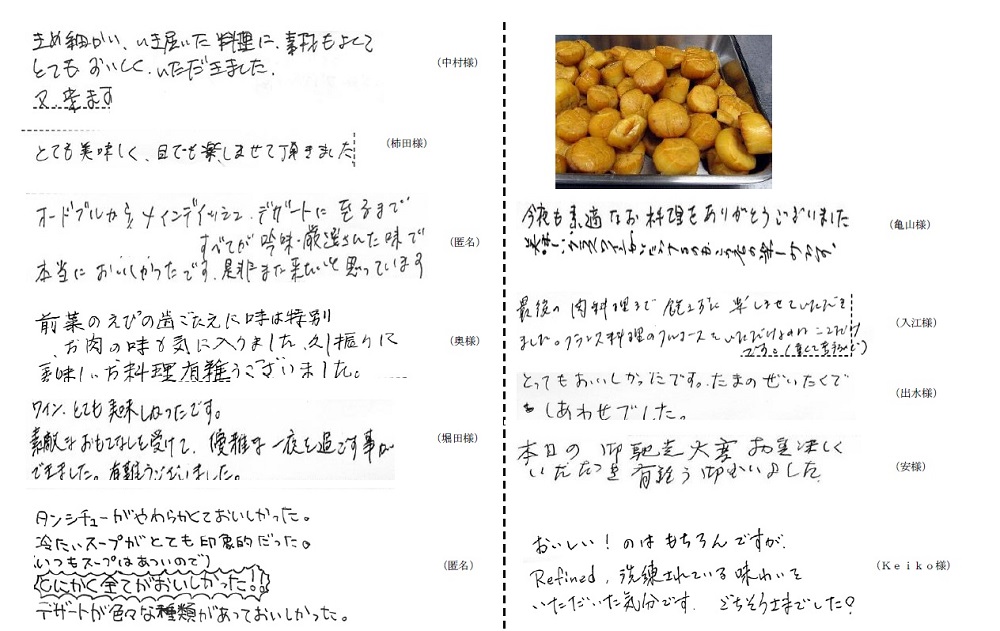 きめ細かい、いき届いた料理に、素材もよくて
とてもおいしく、いただきました。
又、来ます
(中村様)
とても美味しく、目でも楽しませて頂きました
(柿田様)
オードブルから メインディッシュ、デザートに至るまで
すべてが吟味・厳選された味で
(匿名)
本当においしかったです。是非また来たいと思っています
前菜のえびの歯ごたえに味は特別
お肉の味も気に入りました、久し振りに
(奥様)
美味しいお料理有難うございました。
ワイン、とても美味しかったです。
素敵なおもてなしを受けて、優雅な一夜を過ごす事が
(堀田様)
できました。有難うございました。
タンシチューがやわらかくておいしかった。
冷たいスープがとても印象的だった。
(いつもスープはあついので)
(匿名)
とにかく全てがおいしかった!!
デザートが色々な種類があっておいしかった。
今夜も素適なお料理をありがとうございました
(亀山様)
最後の肉料理まで飽きずに楽しませていただき
ました。フランス料理のフルコースをいただけるのは ここだけ
(入江様)
です。
とってもおいしかったです。たまのぜいたくで
しあわせでした。
(出水様)
本日の御馳走大変お美味しく
いただき有難う御座いました
(安様)
おいしい!のはもちろんですが、
Refined、洗練されている味わいを
(Keiko様)
いただいた気分です。ごちそうさまでした。